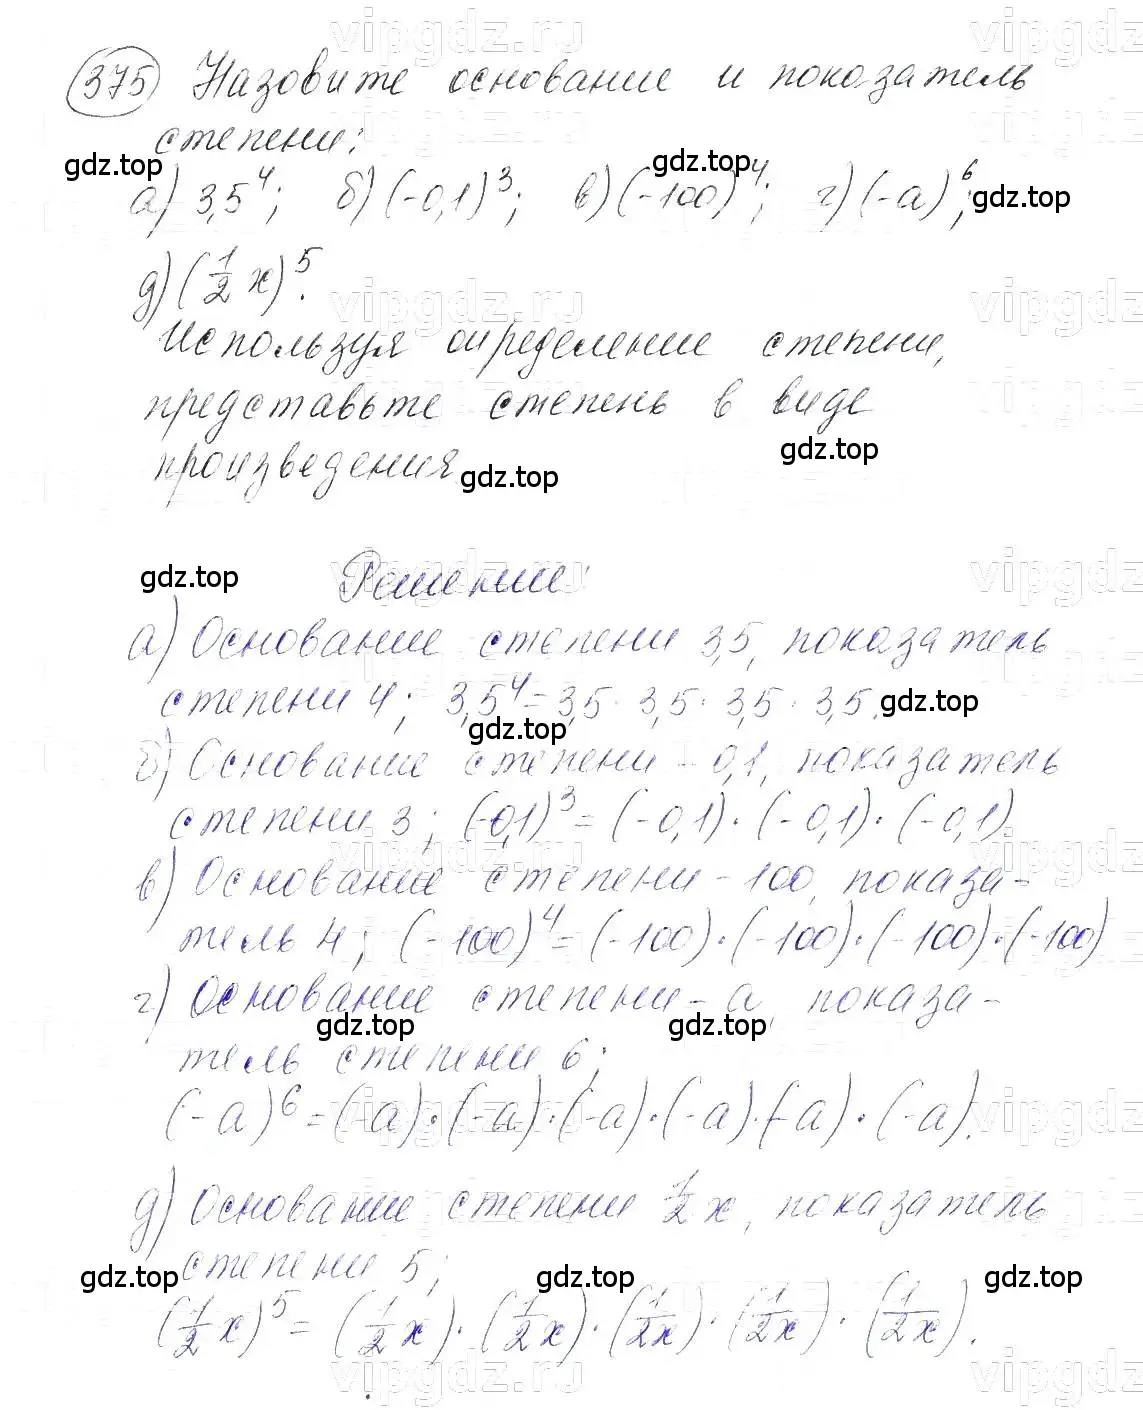 375 Назовите основание и показатель
степени:
а) 3,5⁴; б) (-0,1)³; в) (-100)⁴; г) (-a)⁶;
д) (1/2 x)⁵.
Используя определение степени,
представьте степень в виде
произведения.
Решение:
а) Основание степени 3,5, показатель
степени 4; 3,5⁴ = 3,5 · 3,5 · 3,5 · 3,5.
б) Основание степени -0,1, показатель
степени 3; (-0,1)³ = (-0,1) · (-0,1) · (-0,1).
в) Основание степени -100, показа-
тель 4; (-100)⁴ = (-100) · (-100) · (-100) · (-100)
г) Основание степени -a, показа-
тель степени 6;
(-a)⁶ = (-a) · (-a) · (-a) · (-a) · (-a) · (-a).
д) Основание степени 1/2 x, показатель
степени 5;
(1/2 x)⁵ = (1/2 x) · (1/2 x) · (1/2x) · (1/2x) · (1/2x).